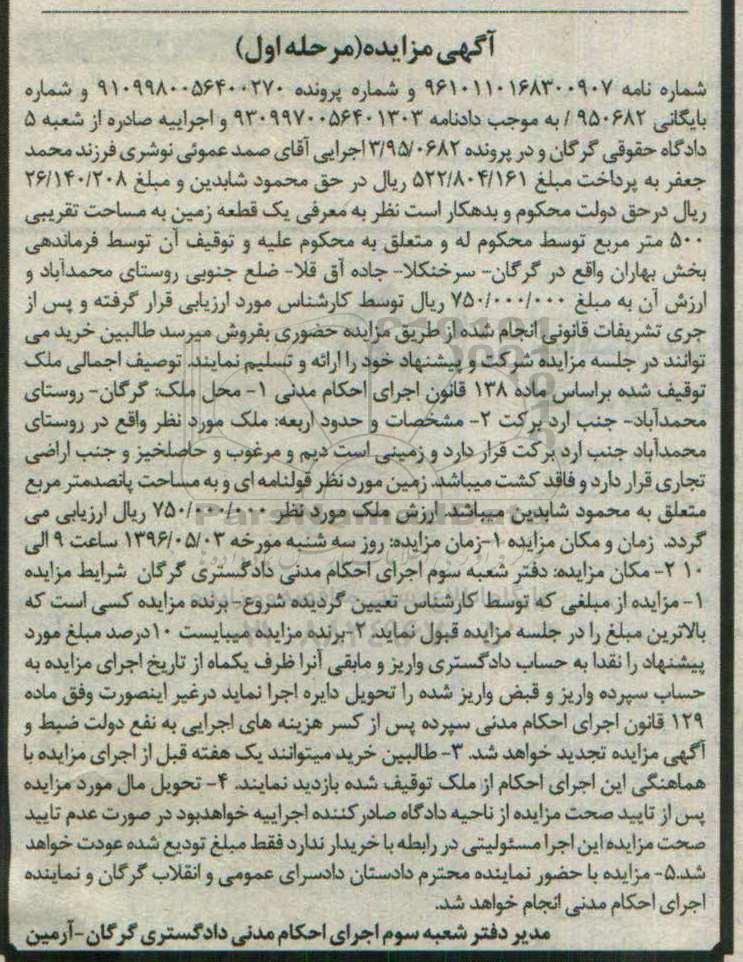 آگهی مزایده(مرحله اول)
شماره نامه ۹۶۱۰۱۱۰۱۶۸۳۰۰۹۰۷ و شماره پرونده ۹۱۰۹۹۸۰۰۵۶۴۰۰۲۷۰ و شماره
بایگانی ۹۵۰۶۸۲ / به موجب دادنامه ۹۳۰۹۹۷۰۰۵۶۴۰۱۳۰۳ و اجراییه صادره از شعبه ۵
دادگاه حقوقی گرگان و در پرونده ۳/۹۵/۰۶۸۲ اجرایی آقای صمد عموئی نوشری فرزند محمد
جعفر به پرداخت مبلغ ۵۲۲/۸۰۴/۱۶۱ ریال در حق محمود شابدین و مبلغ ۲۶/۱۴۰/۲۰۸
ریال درحق دولت محکوم و بدهکار است نظر به معرفی یک قطعه زمین به مساحت تقریبی
۵۰۰ متر مربع توسط محکوم له و متعلق به محکوم علیه و توقیف آن توسط فرماندهی
بخش بهاران واقع در گرگان- سرخنکلا- جاده آق قلا- ضلع جنوبی روستای محمدآباد و
ارزش آن به مبلغ ۷۵۰/۰۰۰/۰۰۰ ریال توسط کارشناس مورد ارزیابی قرار گرفته و پس از
جری تشریفات قانونی انجام شده از طریق مزایده حضوری بفروش میرسد طالبین خرید می
توانند در جلسه مزایده شرکت و پیشنهاد خود را ارائه و تسلیم نمایند. توصیف اجمالی ملک
توقیف شده براساس ماده ۱۳۸ قانون اجرای احکام مدنی ۱- محل ملک: گرگان- روستای
محمدآباد- جنب ارد برکت ۲- مشخصات و حدود اربعه: ملک مورد نظر واقع در روستای
محمدآباد جنب ارد برکت قرار دارد و زمینی است دیم و مرغوب و حاصلخیز و جنب اراضی
تجاری قرار دارد و فاقد کشت میباشد. زمین مورد نظر قولنامه ای و به مساحت پانصدمتر مربع
متعلق به محمود شابدین میباشد. ارزش ملک مورد نظر ۷۵۰/۰۰۰/۰۰۰ ریال ارزیابی می
گردد. زمان و مکان مزایده ۱-زمان مزایده: روز سه شنبه مورخه ۱۳۹۶/۰۵/۰۳ ساعت ۹ الی
۱۰ ۲- مکان مزایده: دفتر شعبه سوم اجرای احکام مدنی دادگستری گرگان شرایط مزایده
۱- مزایده از مبلغی که توسط کارشناس تعیین گردیده شروع- برنده مزایده کسی است که
بالاترین مبلغ را در جلسه مزایده قبول نماید. ۲-برنده مزایده میبایست ۱۰درصد مبلغ مورد
پیشنهاد را نقدا به حساب دادگستری واریز و مابقی آنرا ظرف یکماه از تاریخ اجرای مزایده به
حساب سپرده واریز و قبض واریز شده را تحویل دایره اجرا نماید درغیر اینصورت وفق ماده
۱۲۹ قانون اجرای احکام مدنی سپرده پس از کسر هزینه های اجرایی به نفع دولت ضبط و
آگهی مزایده تجدید خواهد شد. ۳- طالبین خرید میتوانند یک هفته قبل از اجرای مزایده با
هماهنگی این اجرای احکام از ملک توقیف شده بازدید نمایند. ۴- تحویل مال مورد مزایده
پس از تایید صحت مزایده از ناحیه دادگاه صادرکننده اجراییه خواهدبود در صورت عدم تایید
صحت مزایده این اجرا مسئولیتی در رابطه با خریدار ندارد فقط مبلغ تودیع شده عودت خواهد
شد.۵- مزایده با حضور نماینده محترم دادستان دادسرای عمومی و انقلاب گرگان و نماینده
اجرای احکام مدنی انجام خواهد شد.
مدیر دفتر شعبه سوم اجرای احکام مدنی دادگستری گرگان-آرمین